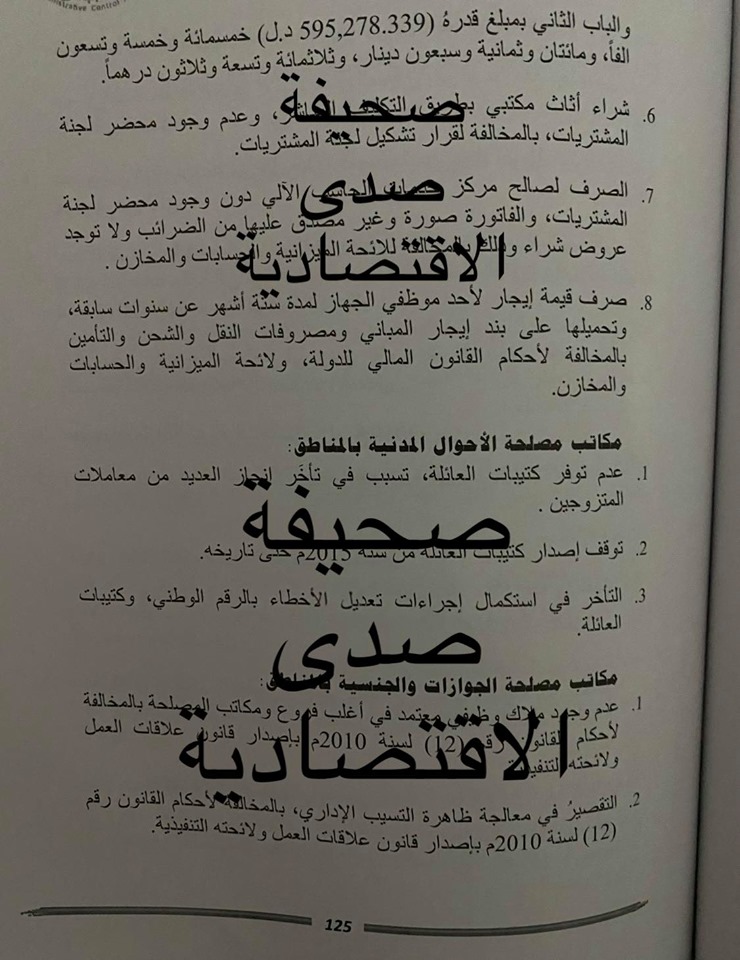 Administrative Control
والباب الثاني بمبلغ قدرهُ (595,278.339 د.ل) خمسمائة وخمسة وتسعون
الفاً، ومائتان وثمانية وسبعون دينار، وثلاثمائة وتسعة وثلاثون درهماً.
6. شراء أثاث مكتبي بطريق التكليف المباشر، وعدم وجود محضر لجنة
المشتريات، بالمخالفة لقرار تشكيل لجنة المشتريات.
صحيفة
7. الصرف لصالح مركز الحاسب الآلي دون وجود محضر لجنة
صدى
المشتريات، والفاتورة صورة وغير مصدق عليها من الضرائب ولا توجد
عروض شراء وذلك بالمخالفة للائحة الميزانية والحسابات والمخازن .
الاقتصادية
8. صرف قيمة إيجار لأحد موظفي الجهاز لمدة ستة أشهر عن سنوات سابقة،
وتحميلها على بند إيجار المباني ومصروفات النقل والشحن والتأمين
بالمخالفة لأحكام القانون المالي للدولة، ولائحة الميزانية والحسابات
والمخازن.
مكاتب مصلحة الأحوال المدنية بالمناطق:
1. عدم توفر كتيبات العائلة، تسبب في تأخَر إنجاز العديد من معاملات
المتزوجين .
صحيفة
2. توقف إصدار كتيبات العائلة من سنة 2015م حتى تاريخه.
3. التأخر في استكمال إجراءات تعديل الأخطاء بالرقم الوطني، وكتيبات
العائلة.
صدى
مكاتب مصلحة الجوازات والجنسية بالمناطق:
1. عدم وجود ملاك وظيفي معتمد في أغلب فروع ومكاتب المصلحة بالمخالفة
لأحكام القانون رقم (12) لسنة 2010م بإصدار قانون علاقات العمل
ولائحته التنفيذية
الاقتصادية
2. التقصيرُ في معالجة ظاهرة التسيب الإداري، بالمخالفة لأحكام القانون رقم
(12) لسنة 2010م بإصدار قانون علاقات العمل ولائحته التنفيذية.
125